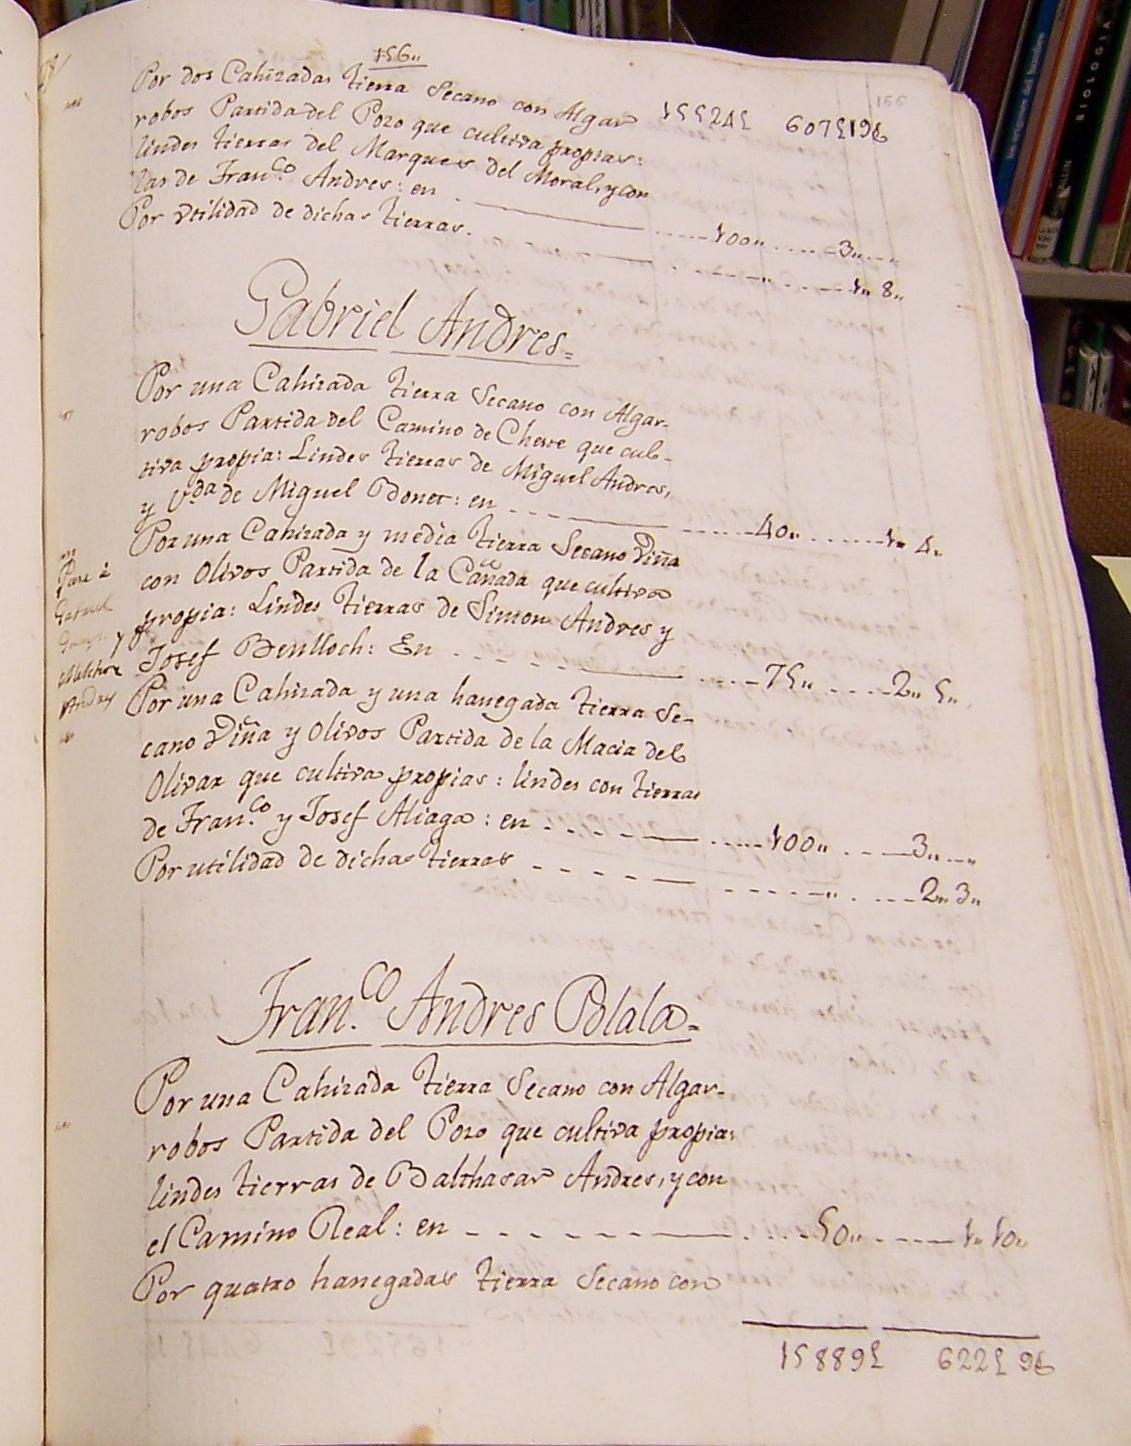 156„
155
Por dos Cahizadas tierra Secano con Algar
robos Partida del Pozo que cultiva propias:
lindes tierras del Marques del Moral, y con
las de Fran.co Andres: en 100„ 3„
Por vtilidad de dichas tierras. 1„ 8„
Gabriel Andres
Por una Cahizada tierra Secano con Algar-
robos Partida del Camino de Cheste que cul-
tiva propia: Lindes tierras de Miguel Andres,
y V.da de Miguel Bonet: en 40„ 1„ 4„
Por una Cahizada y media tierra Secano viña
con Olivos Partida de la Cañada que cultiva
propia: Lindes tierras de Simon Andres y
Josef Benlloch: En 75„ 2„ 5„
Para à
y
Melchor
Andres
Por una Cahizada y una hanegada tierra Se-
cano viña y Olivos Partida de la Macia del
Olivar que cultiva propias: lindes con tierras
de Fran.co y Josef Aliaga: en 100„ 3„
Por utilidad de dichas tierras 2„ 3„
Fran.co Andres Blala
Por una Cahizada tierra Secano con Algar-
robos Partida del Pozo que cultiva propia:
lindes tierras de Balthasar Andres, y con
el Camino Real: en 50„ 1„ 10„
Por quatro hanegadas tierra Secano con